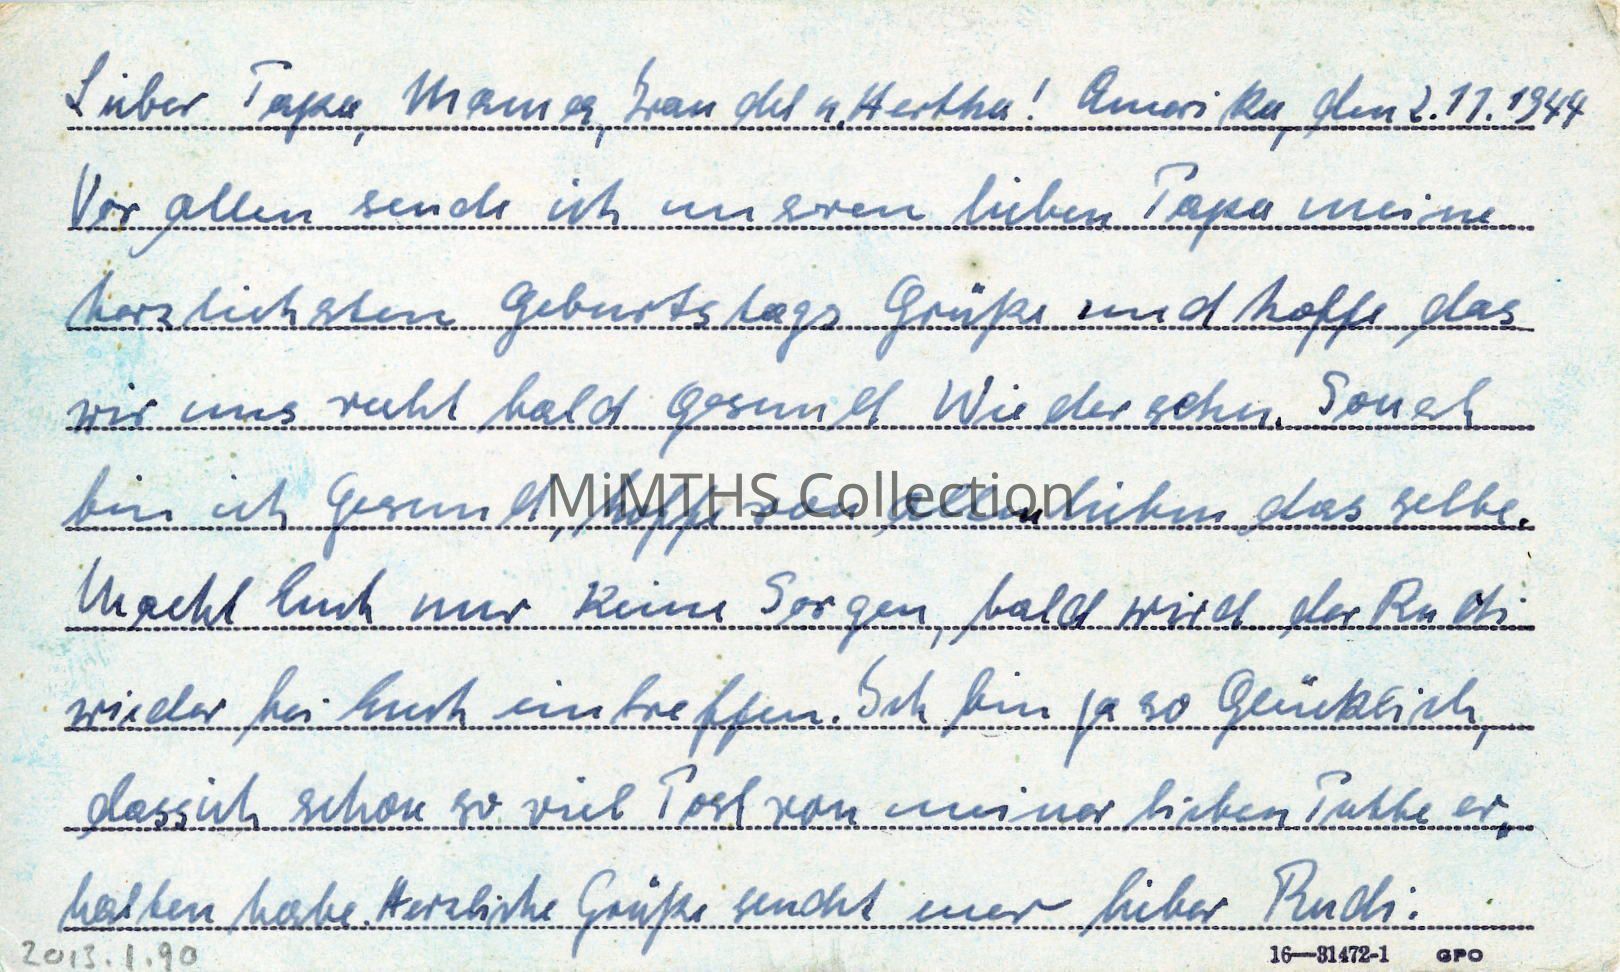 Lieber Papa, Mama, Traudel u. Hertha! Amerika, den 2.11.1944
Vor allen sende ich unsren lieben Papa meine
herzlichsten Geburtstags Grüße und hoffe das
wir uns recht bald Gesund Wiedersehn. Sonst
bin ich Gesund, hoffe von allen lieben das selbe.
MiMTHS Collection
Macht Euch nur Keine Sorgen, bald wird der Rudi
wieder bei Euch eintreffen. Ich bin ja so Glücklich,
dass ich schon so viel Post von meiner lieben er,
halten habe. Herzliche Grüße sendet euer lieber Rudi.
2013.1.90
16—31472-1 GPO